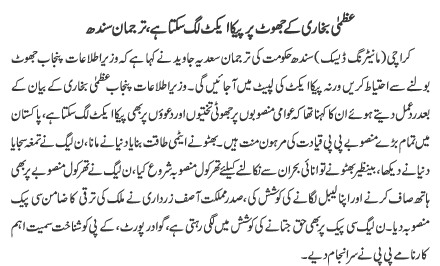 عظمیٰ بخاری کے جھوٹ پر پیکا ایکٹ لگ سکتا ہے، ترجمان سندھ
کراچی (مانیٹرنگ ڈیسک) سندھ حکومت کی ترجمان سعدیہ جاوید نے کہا ہے کہ وزیر اطلاعات پنجاب جھوٹ
بولنے سے احتیاط کریں ورنہ پیکا ایکٹ کی لپیٹ میں آجائیں گی۔ وزیر اطلاعات پنجاب عظمیٰ بخاری کے بیان کے
بعد ردعمل دیتے ہوئے ان کا کہنا تھا کہ عوامی منصوبوں پر جھوٹی تختیوں اور دعوؤں پر بھی پیکا ایکٹ لگ سکتا ہے، پاکستان
میں تمام بڑے منصوبے پی پی قیادت کی مرہون منت ہیں۔ بھٹو نے ایٹمی طاقت بنایا دنیا نے مانا، ن لیگ نے تمغہ سجایا
دنیا نے دیکھا، بینظیر بھٹو نے توانائی بحران سے نکالنے کیلئے تھرکول منصوبہ شروع کیا، ن لیگ نے تھرکول منصوبے پر بھی
ہاتھ صاف کرنے اور اپنا لیبل لگانے کی کوشش کی، صدر مملکت آصف زرداری نے ملک کی ترقی کا ضامن سی پیک
منصوبہ دیا۔ ن لیگ سی پیک پر بھی حق جتانے کی کوشش میں لگی رہتی ہے، گوادر پورٹ، کے پی کو شناخت سمیت اہم
کارنامے پی پی نے سرانجام دیے۔